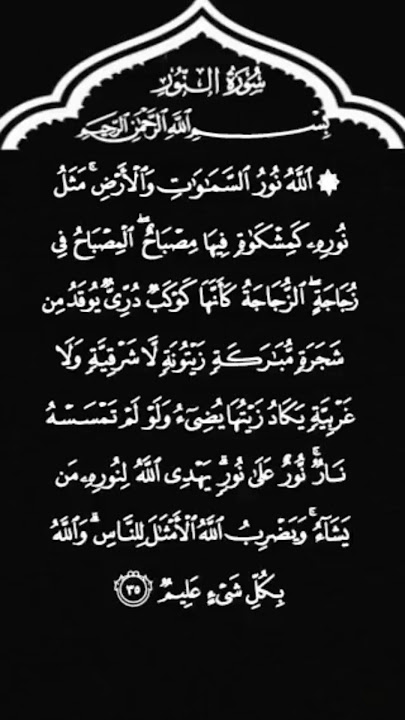 سُورَةُ النُّورِ
بِسْمِ اللَّهِ الرَّحْمَٰنِ الرَّحِيمِ
۞ ٱللَّهُ نُورُ ٱلسَّمَٰوَٰتِ وَٱلْأَرْضِ ۚ مَثَلُ
نُورِهِۦ كَمِشْكَوٰةٍ فِيهَا مِصْبَاحٌ ۖ ٱلْمِصْبَاحُ فِى
زُجَاجَةٍ ۖ ٱلزُّجَاجَةُ كَأَنَّهَا كَوْكَبٌ دُرِّىٌّ يُوقَدُ مِن
شَجَرَةٍ مُّبَٰرَكَةٍ زَيْتُونَةٍ لَّا شَرْقِيَّةٍ وَلَا
غَرْبِيَّةٍ يَكَادُ زَيْتُهَا يُضِىٓءُ وَلَوْ لَمْ تَمْسَسْهُ
نَارٌ ۚ نُّورٌ عَلَىٰ نُورٍ ۗ يَهْدِى ٱللَّهُ لِنُورِهِۦ مَن
يَشَآءُ ۚ وَيَضْرِبُ ٱللَّهُ ٱلْأَمْثَٰلَ لِلنَّاسِ ۗ وَٱللَّهُ
بِكُلِّ شَىْءٍ عَلِيمٌ ٣٥